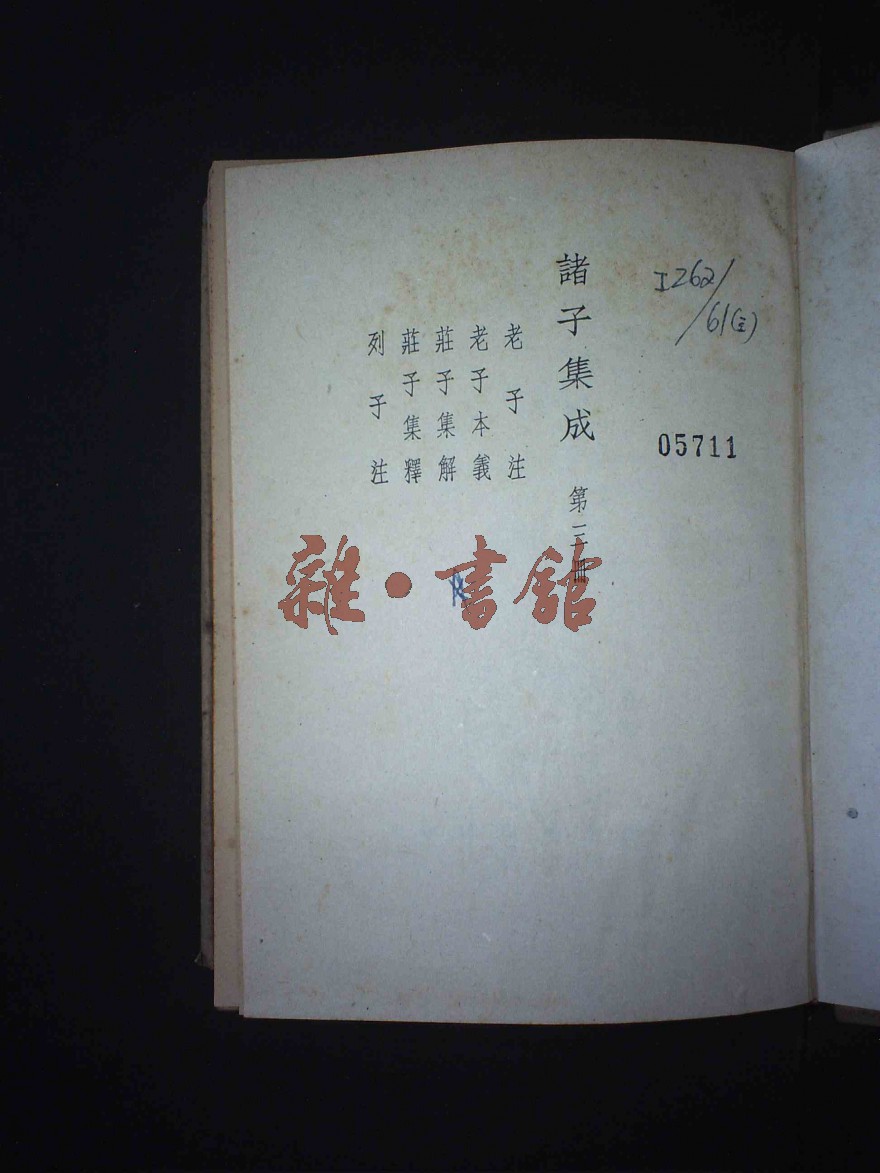 I262/
61(三)
05711
諸子集成 第三冊
老子注
老子本義
莊子集解
莊子集釋
列子注
雜·書館